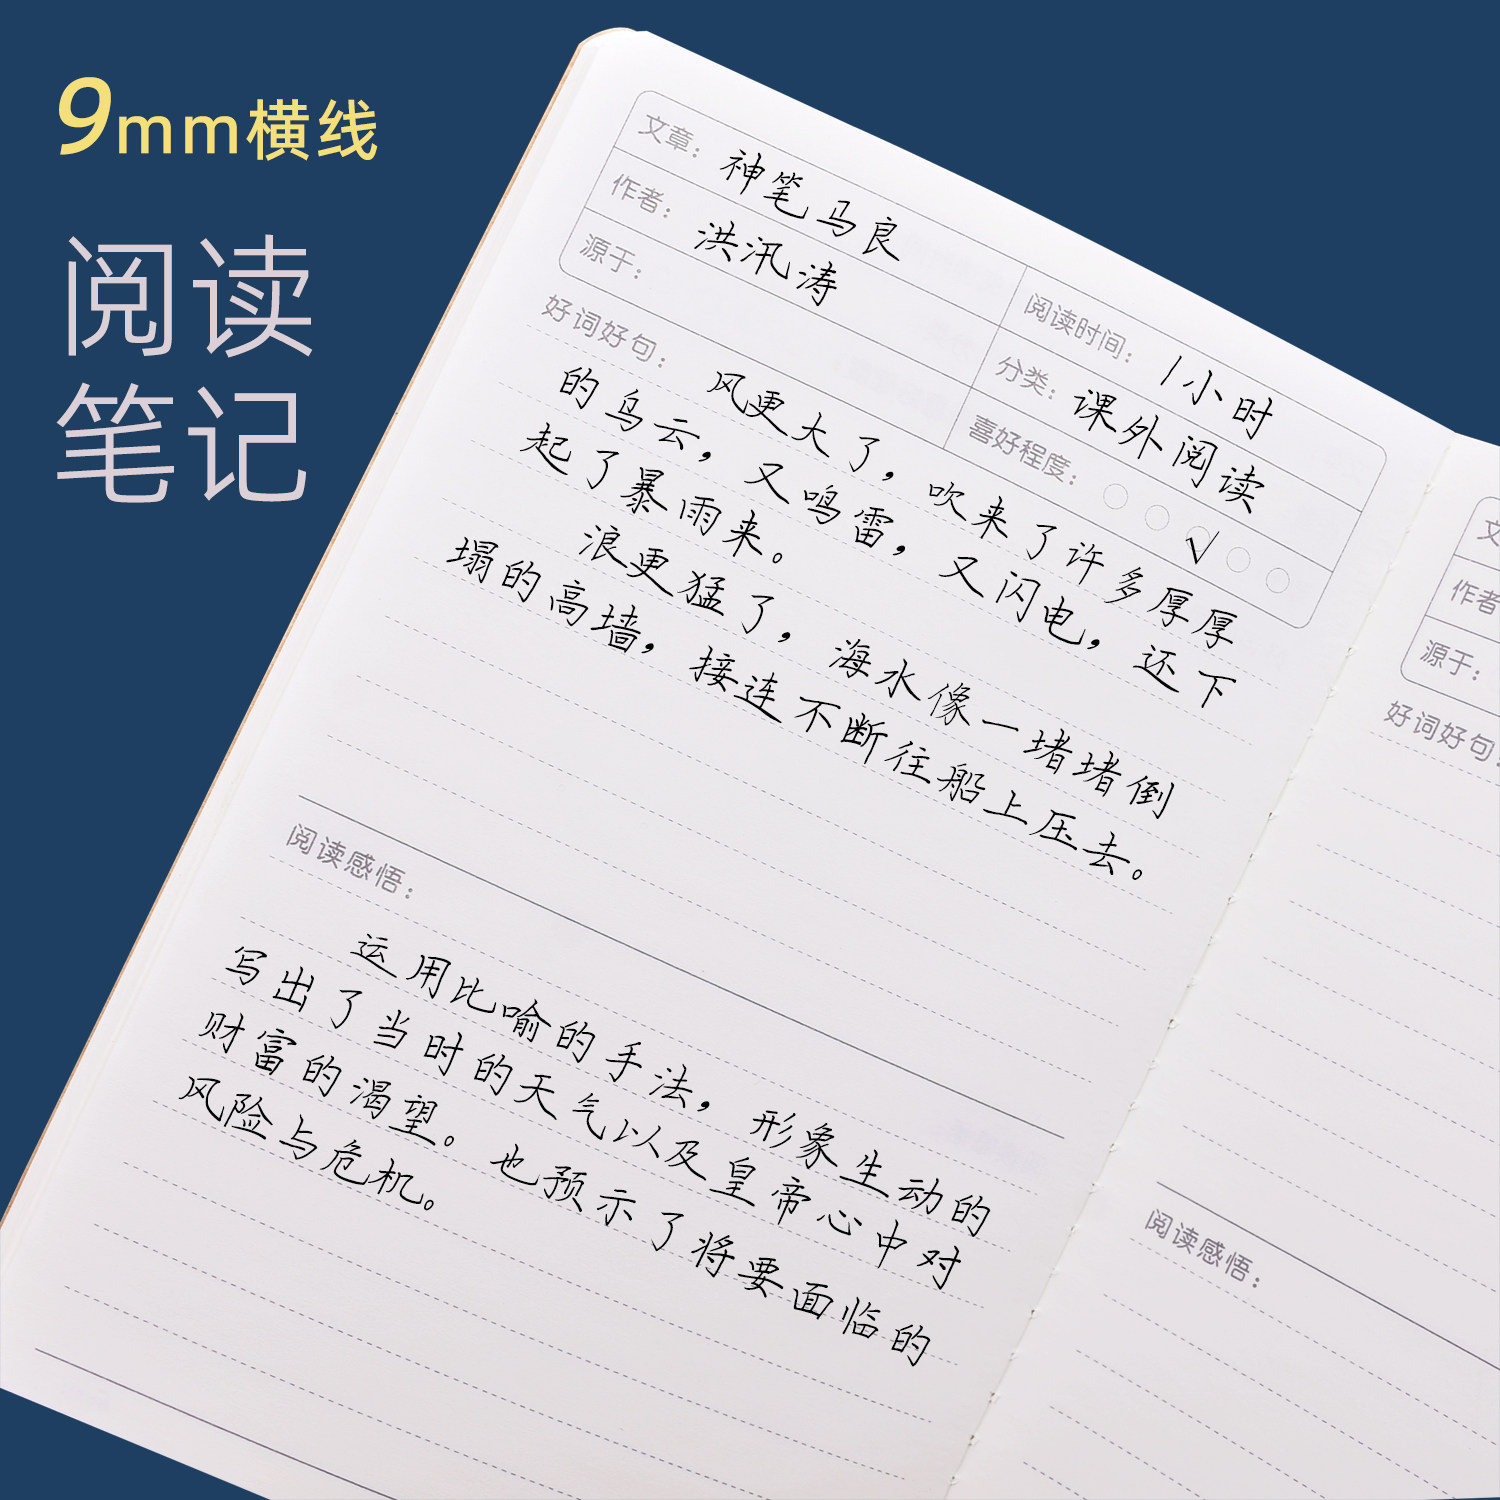 9mm横线
阅读
笔记
文章：神笔马良
作者：洪汛涛
源于：
阅读时间：1小时
分类：课外阅读
喜好程度：
好词好句：
风更大了，吹来了许多厚厚
的乌云，又鸣雷，又闪电，还下
起了暴雨来。
浪更猛了，海水像一堵堵倒
塌的高墙，接连不断往船上压去。
阅读感悟：
运用比喻的手法，形象生动的
写出了当时的天气以及皇帝心中对
财富的渴望。也预示了将要面临的
风险与危机。
作者
源于：
好词好句：
阅读感悟：